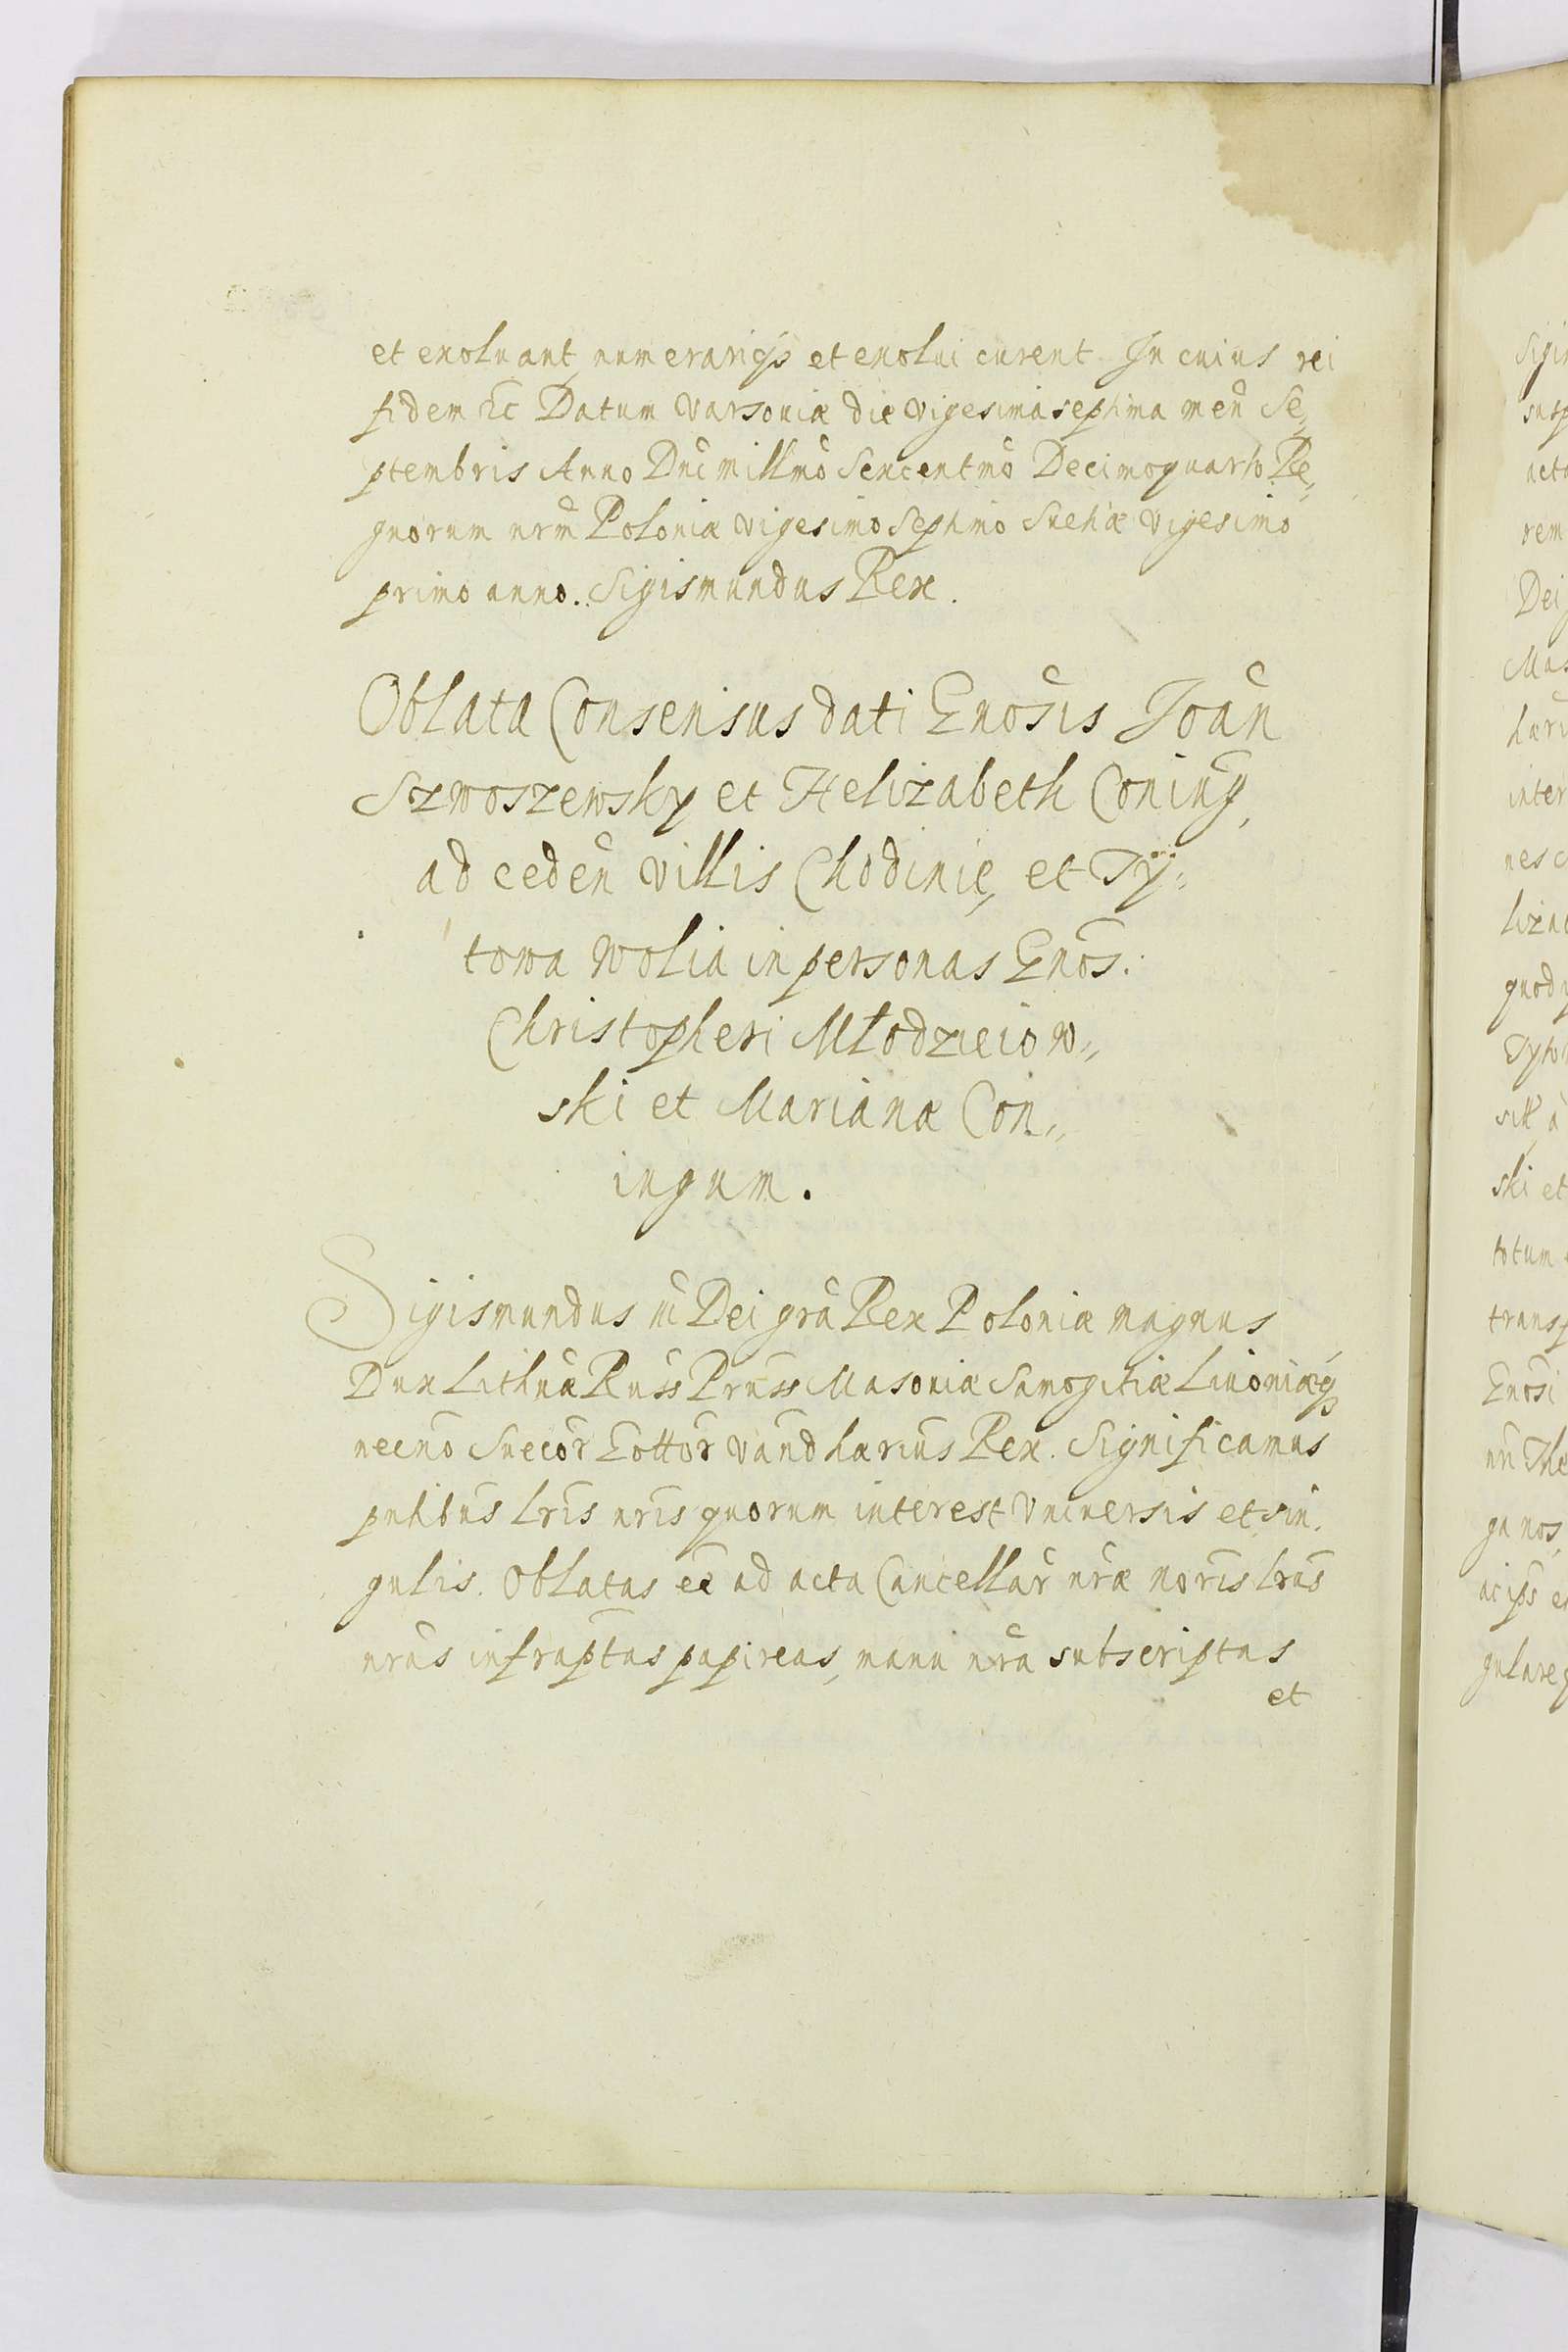 et exoluant numerariq; et exolui curent. In cuius rei
fidem &c Datum Varsouiæ die vigesima septima men̄ Se„
ptembris Anno Dn̄i millm̄o Sexcentm̄o Decimoquarto Re„
gnorum nrm̄ Poloniæ vigesimo Septimo Suetiæ vigesimo
primo anno. Sigismundus Rex.
Oblata Consensus dati Gnosis Joan̄
Szwoszewsky et Helizabeth Conin̄g,
ad ceden̄ villis Chodinie, et Ty„
towa Wolia in personas Gnos.
Christopheri Młodzieiow„
ski et Marianæ Con„
ingum.
Sigismundus iii Dei grā Rex Poloniæ magnus
Dux Lithuæ Russ Pruss Masouiæ Samogitiæ Liuoniæq;
necno Suecor̄ Gottor̄ Vandlariūs Rex. Significamus
pntibūs lrīs nrīs quorum interest Vniuersis et sin„
gulis. Oblatas eē ad acta Cancellar̄ nræ noris lrās
nrās infraptas papireas, manu nrā subscriptas
et
Dei
inter
ski et
totum